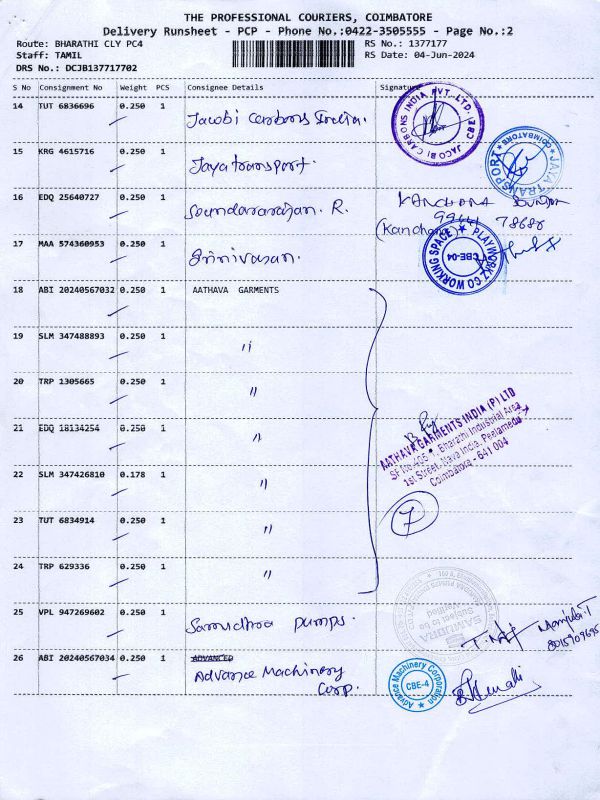 THE PROFESSIONAL COURIERS, COIMBATORE
Delivery Runsheet - PCP - Phone No.:0422-3505555 - Page No.:2
Route: BHARATHI CLY PC4 RS No.: 1377177
Staff: TAMIL RS Date: 04-Jun-2024
DRS No.: DCJB137717702
S No Consignment No Weight PCS Consignee Details Signature
14 TUT 6836696 0.250 1 Jacobi Carbons India.
JACOBI CARBONS INDIA PVT. LTD. CBE
15 KRG 4615716 0.250 1 Jayatransport.
JAYA TRANSPORT COIMBATORE
16 EDQ 25640727 0.250 1 Soundararajan. R. KANCHANA
99441 78686
17 MAA 574360953 0.250 1 Srinivasan.
PLAYWORKZ CO WORKING SPACE CBE-04
18 ABI 20240567032 0.250 1 AATHAVA GARMENTS
19 SLM 347488893 0.250 1 "
20 TRP 1305665 0.250 1 "
21 EDQ 18134254 0.250 1 "
AATHAVA GARMENTS INDIA (P) LTD
SF No.405, Bharathi Industrial Area,
1st Street, Nava India, Peelamedu
Coimbatore - 641 004
22 SLM 347426810 0.178 1 "
7
23 TUT 6834914 0.250 1 "
24 TRP 629336 0.250 1 "
25 VPL 947269602 0.250 1 Samudhra pumps.
SAMUDRA
Subject to be
Verified
26 ABI 20240567034 0.250 1 ADVANCED
Advance Machinery
Corp.
Advance Machinery Corporation
CBE-4